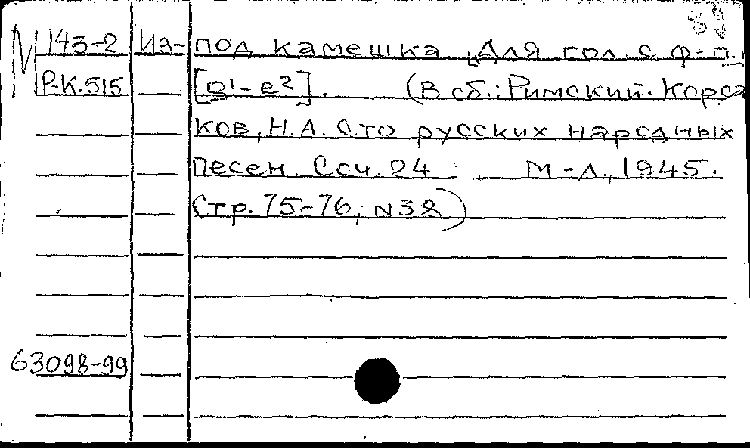 М 143-2 Из-под камешка. Для гол. с ф-п.
Р-К.515 [d¹-e²]. (В сб.: Римский-Корса
ков, Н.А. Сто русских народных
песен. Соч. 24. М-Л., 1945.
Стр. 75-76, №32)
63098-99